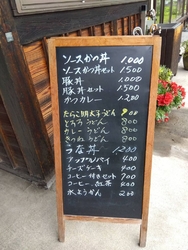 ソースかつ丼 1,000
ソースかつ丼セット 1,500
豚丼 1,000
豚丼セット 1,500
カツカレー 1,200
たらこ明太子うどん 900
とろろうどん 800
カレーうどん 800
きつねうどん 800
うな丼 1,200
アップルパイ 400
チーズケーキ 400
コーヒー付きセット 700
コーヒー 紅茶 400
水ようかん 200